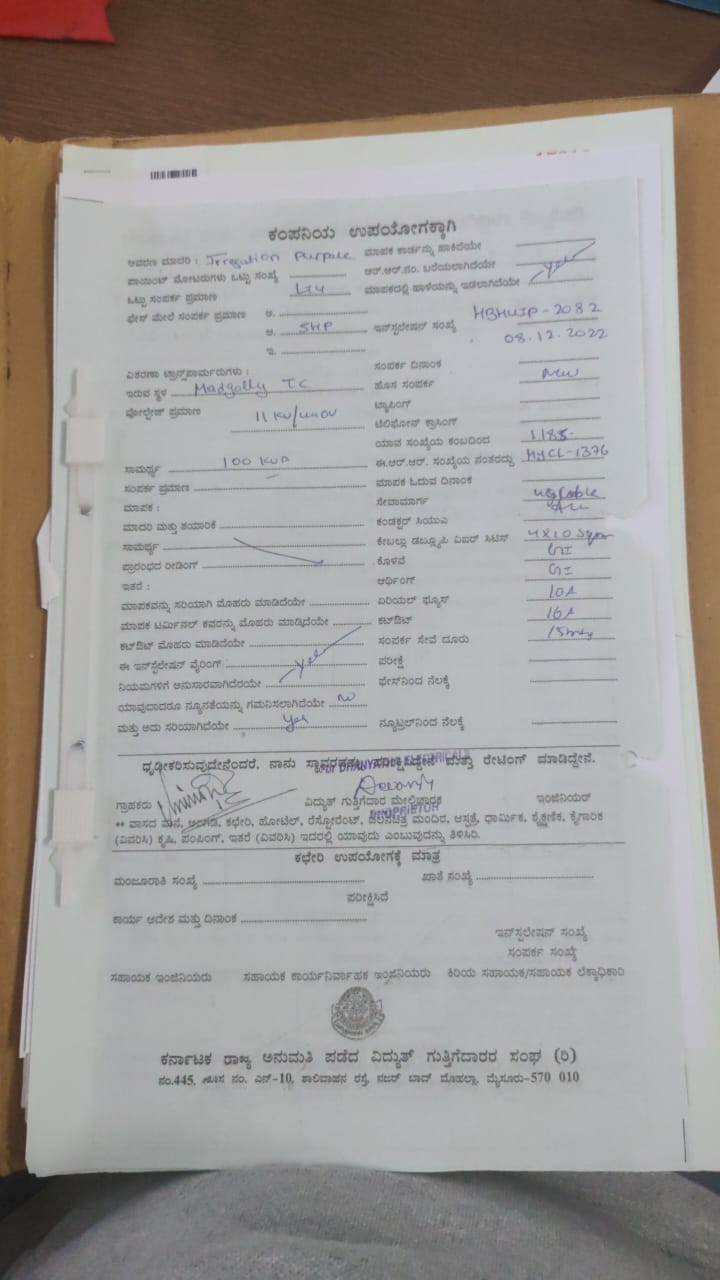 ಕಂಪನಿಯ ಉಪಯೋಗಕ್ಕಾಗಿ
ಆವರಣ ಮಾದರಿ : Irregation Purpose ಮಾಪಕ ಕಾರ್ಡನ್ನು ಹಾಕಿದೆಯೇ
ಪಾಯಿಂಟ್ ಮೋಟರುಗಳು ಒಟ್ಟು ಸಂಖ್ಯೆ ಆರ್.ಆರ್.ನಂ. ಬರೆಯಲಾಗಿದೆಯೇ
ಒಟ್ಟು ಸಂಪರ್ಕ ಪ್ರಮಾಣ ಮಾಪಕದಲ್ಲಿ ಹಾಳೆಯನ್ನು ಇಡಲಾಗಿದೆಯೇ yes
ಫೇಸ್ ಮೇಲೆ ಸಂಪರ್ಕ ಪ್ರಮಾಣ ಅ.
ಆ. 5HP ಇನ್‌ಸ್ಟಲೇಷನ್ ಸಂಖ್ಯೆ HBHUIP-2082
08.12.2022
ಇ.
ವಿತರಣಾ ಟ್ರಾನ್ಸ್‌ಫಾರ್ಮರುಗಳು : ಸಂಪರ್ಕ ದಿನಾಂಕ
ಇರುವ ಸ್ಥಳ Madgolly TC ಹೊಸ ಸಂಪರ್ಕ New
ವೋಲ್ಟೇಜ್ ಪ್ರಮಾಣ 11 KV/ ಟ್ಯಾಪಿಂಗ್
ಟೆಲಿಫೋನ್ ಕ್ರಾಸಿಂಗ್
ಯಾವ ಸಂಖ್ಯೆಯ ಕಂಬದಿಂದ 1185
ಸಾಮರ್ಥ್ಯ 100 KVA ಈ.ಆರ್.ಆರ್. ಸಂಖ್ಯೆಯ ನಂತರದ್ದು HYCL-1376
ಸಂಪರ್ಕ ಪ್ರಮಾಣ ಮಾಪಕ ಓದುವ ದಿನಾಂಕ
ಮಾಪಕ : ಸೇವಾಮಾರ್ಗ
ಮಾದರಿ ಮತ್ತು ತಯಾರಿಕೆ ಕಂಡಕ್ಟರ್ ಸಿಯುಎ
ಸಾಮರ್ಥ್ಯ ಕೇಬಲ್ಲು ಡಬ್ಲ್ಯೂಪಿ ವಿಐರ್ ಸಿಟಿಸ್ 4x10 Sqmm
ಪ್ರಾರಂಭದ ರೀಡಿಂಗ್ ಕೊಳವೆ GI
ಇತರೆ : ಆರ್ಥಿಂಗ್ GI
ಮಾಪಕವನ್ನು ಸರಿಯಾಗಿ ಮೊಹರು ಮಾಡಿದೆಯೇ ಏರಿಯಲ್ ಫ್ಯೂಸ್ 10A
ಮಾಪಕ ಟರ್ಮಿನಲ್ ಕವರನ್ನು ಮೊಹರು ಮಾಡ್ಕಿದೆಯೇ ಕಟ್‌ಔಟ್ 16A
ಕಟ್‌ಔಟ್ ಮೊಹರು ಮಾಡಿದೆಯೇ ಸಂಪರ್ಕ ಸೇವೆ ದೂರು
ಈ ಇನ್‌ಸ್ಟಲೇಷನ್ ವೈರಿಂಗ್ ಪರೀಕ್ಷೆ
ನಿಯಮಗಳಿಗೆ ಅನುಸಾರವಾಗಿದೆರಯೇ yes ಫೇಸ್‌ನಿಂದ ನೆಲಕ್ಕೆ
ಯಾವುದಾದರೂ ನ್ಯೂನತೆಯನ್ನು ಗಮನಿಸಲಾಗಿದೆಯೇ No
ಮತ್ತು ಅದು ಸರಿಯಾಗಿದೆಯೇ yes ನ್ಯೂಟ್ರಲ್‌ನಿಂದ ನೆಲಕ್ಕೆ
ಧೃಡೀಕರಿಸುವುದೇನೆಂದರೆ, ನಾನು ಪರೀಕ್ಷಿದ್ದೇನೆ ಮತ್ತು ರೇಟಿಂಗ್ ಮಾಡಿದ್ದೇನೆ.
For DHANYATHA ELECTRICALS
ಗ್ರಾಹಕರು ವಿದ್ಯುತ್ ಗುತ್ತಿಗೆದಾರ ಮೇಲ್ವಿಚಾರಕ ಇಂಜಿನಿಯರ್
PROPRIETOR
** ವಾಸದ ಮನೆ, ಅಂಗಡಿ, ಕಛೇರಿ, ಹೋಟೆಲ್, ರೆಸ್ಟೋರೆಂಟ್, ಚಲನಚಿತ್ರ ಮಂದಿರ, ಆಸ್ಪತ್ರೆ, ಧಾರ್ಮಿಕ, ಶೈಕ್ಷಣಿಕ, ಕೈಗಾರಿಕ
(ವಿವರಿಸಿ) ಕೃಷಿ, ಪಂಪಿಂಗ್, ಇತರೆ (ವಿವರಿಸಿ) ಇದರಲ್ಲಿ ಯಾವುದು ಎಂಬುವುದನ್ನು ತಿಳಿಸಿರಿ.
ಕಛೇರಿ ಉಪಯೋಗಕ್ಕೆ ಮಾತ್ರ
ಮಂಜೂರಾತಿ ಸಂಖ್ಯೆ ಖಾತೆ ಸಂಖ್ಯೆ
ಪರೀಕ್ಷಿಸಿದೆ
ಕಾರ್ಯ ಆದೇಶ ಮತ್ತು ದಿನಾಂಕ
ಇನ್‌ಸ್ಟಲೇಷನ್ ಸಂಖ್ಯೆ
ಸಂಪರ್ಕ ಸಂಖ್ಯೆ
ಸಹಾಯಕ ಇಂಜಿನಿಯರು ಸಹಾಯಕ ಕಾರ್ಯನಿರ್ವಾಹಕ ಇಂಜಿನಿಯರು ಕಿರಿಯ ಸಹಾಯಕ/ಸಹಾಯಕ ಲೆಕ್ಕಾಧಿಕಾರಿ
ಕರ್ನಾಟಕ ರಾಜ್ಯ ಅನುಮತಿ ಪಡೆದ ವಿದ್ಯುತ್ ಗುತ್ತಿಗೆದಾರರ ಸಂಘ (ರಿ)
ನಂ.445, ನಂ. ಎನ್-10, ಶಾಲಿವಾಹನ ರಸ್ತೆ, ನಜರ್ ಬಾದ್ ಮೊಹಲ್ಲಾ, ಮೈಸೂರು-570 010